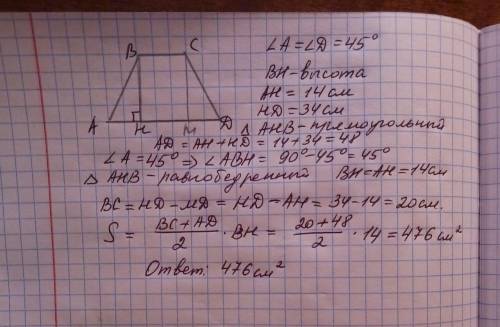 B C
A H M D
∠A = ∠D = 45°
BH - высота
AH = 14 см
HD = 34 см
Δ AHB - прямоугольный
AD = AH + HD = 14 + 34 = 48
∠A = 45° ⇒ ∠ABH = 90° - 45° = 45°
Δ AHB - равнобедренный BH = AH = 14 см
BC = HD - MD = HD - AH = 34 - 14 = 20 см.
S = (BC + AD)/2 · BH = (20 + 48)/2 · 14 = 476 см²
Ответ: 476 см²